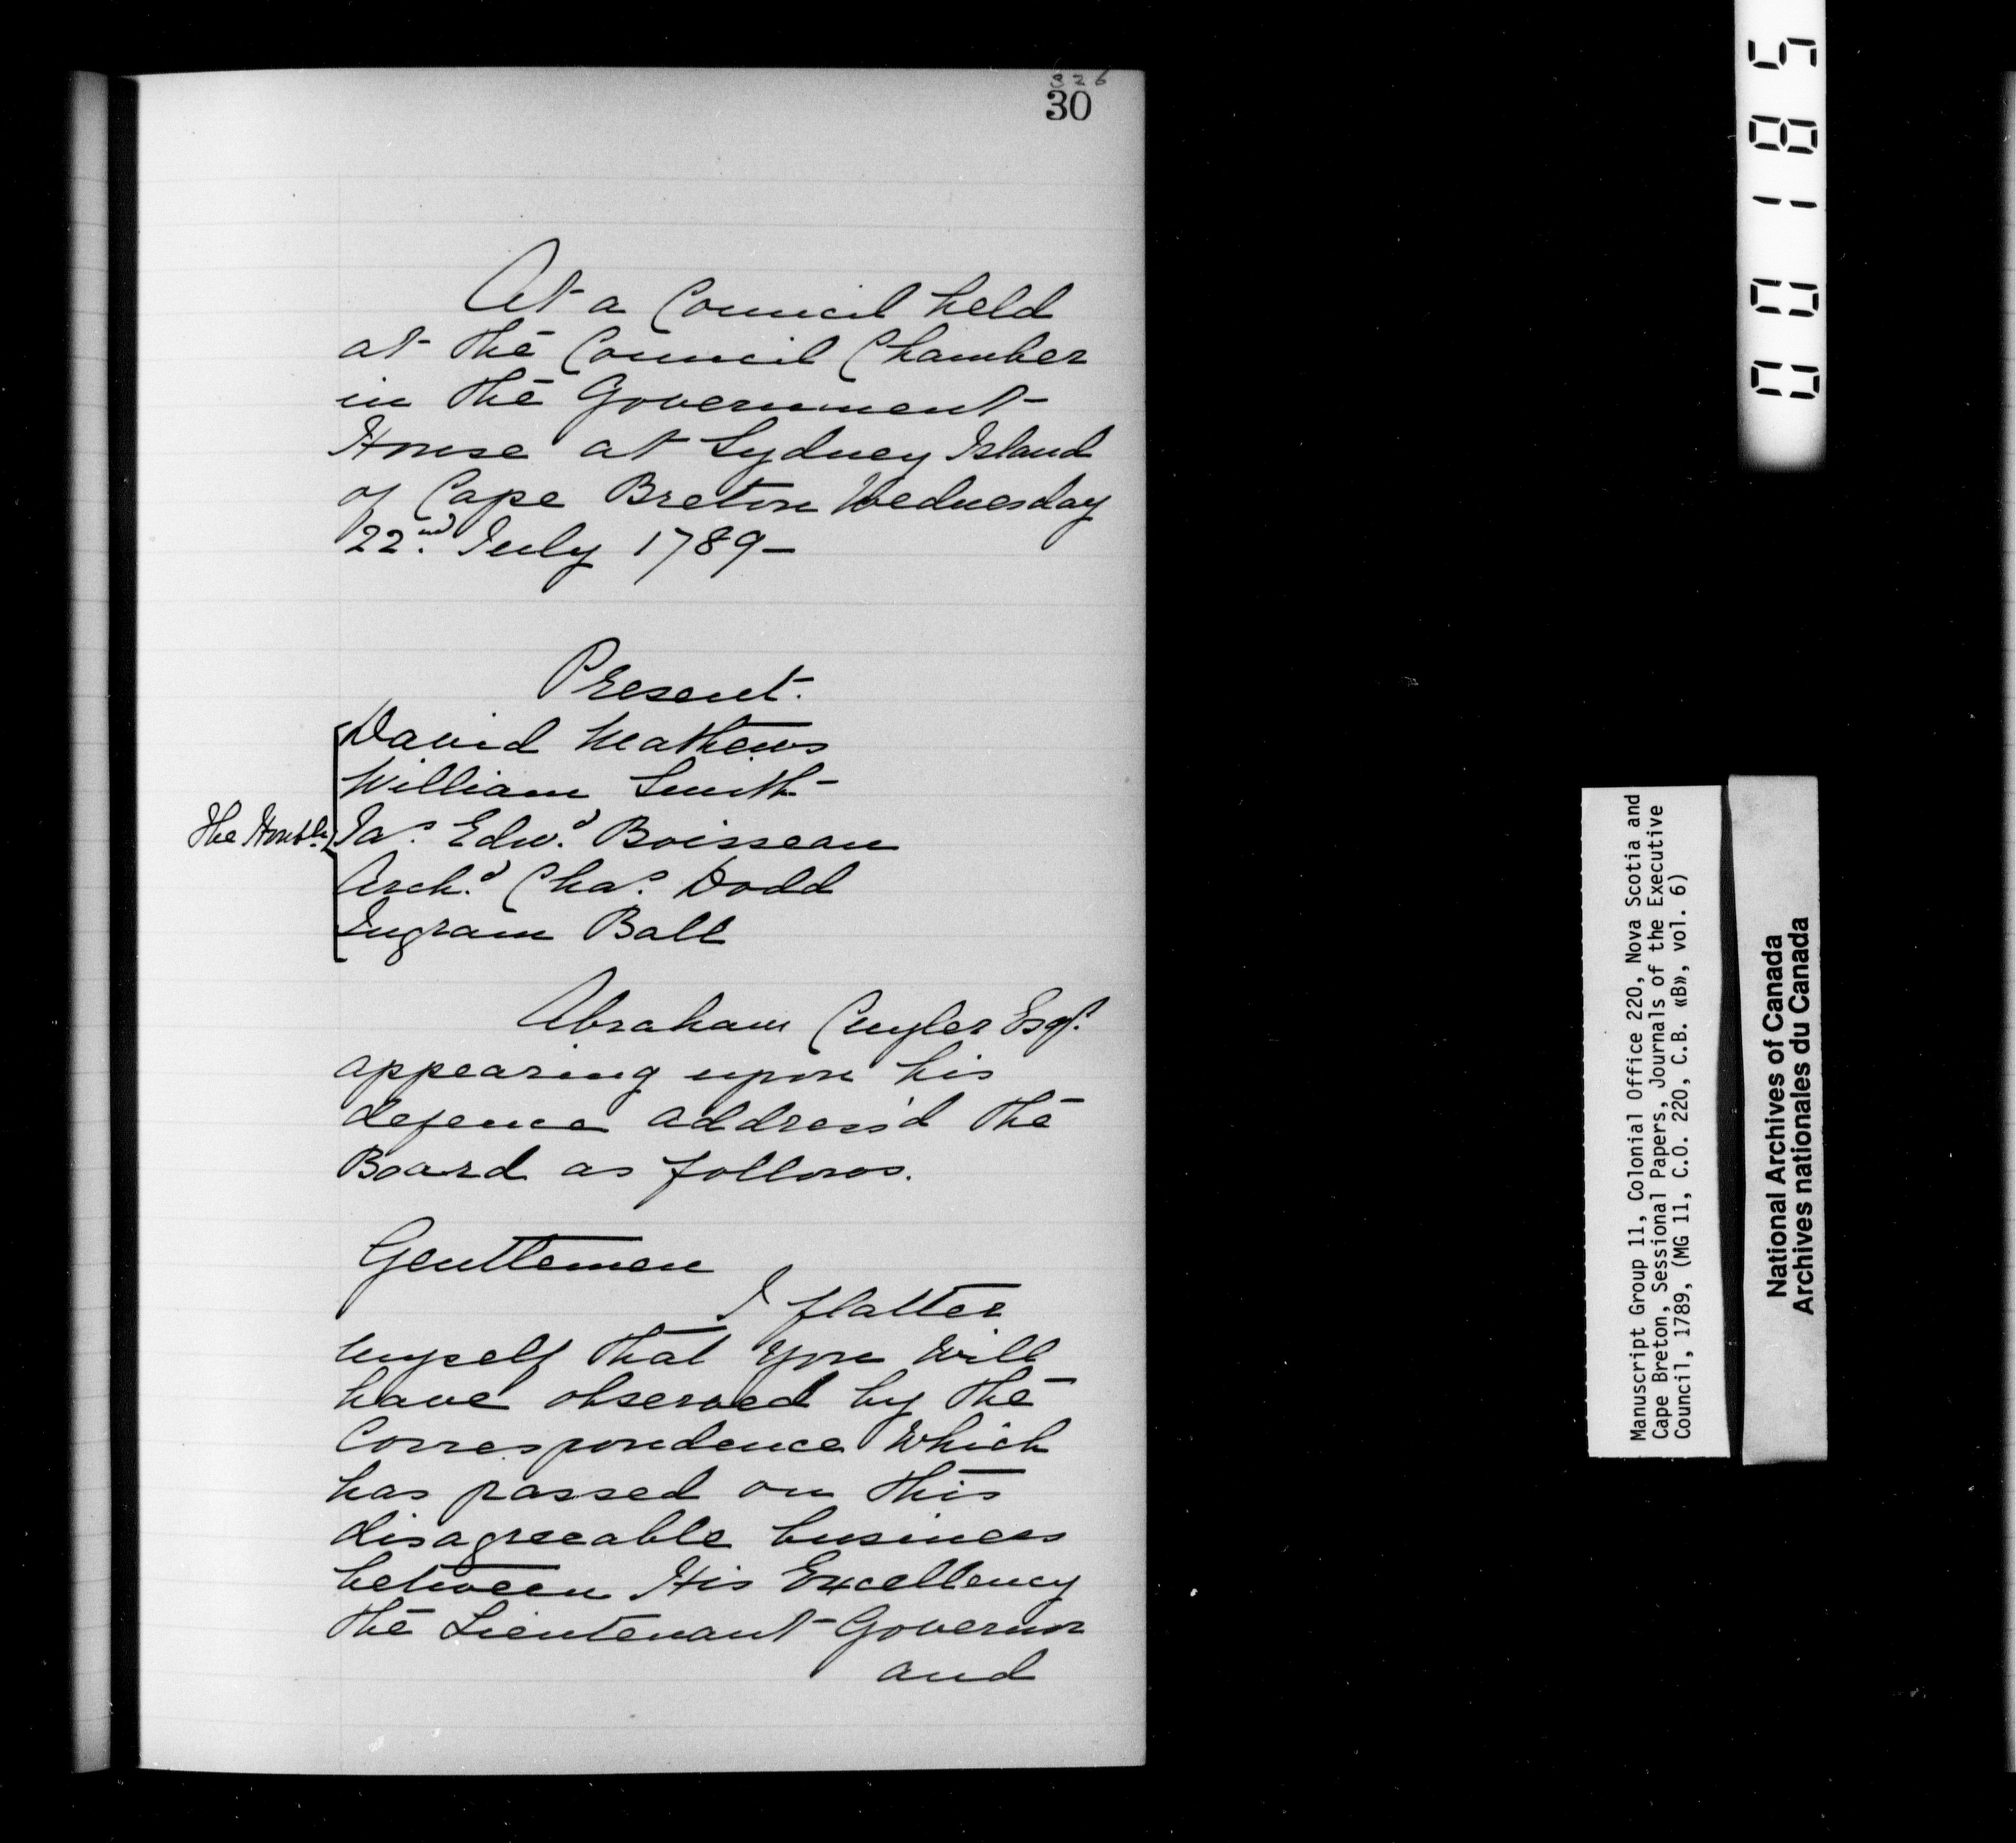 326
30
At a Council held
at the Council Chamber
in the Government
House at Sydney Island
of Cape Breton Wednesday
22nd July 1789–
Present.
David Mathews
William Smith
The Honble. Jas. Edwd. Boisseau
Archd. Chas. Dodd
Ingram Ball
Abraham Cuyler Esqr.
appearing upon his
defence address'd the
Board as follows.
Gentlemen
I flatter
myself that you will
have observed by the
Correspondence which
has passed on this
disagreeable business
between His Excellency
the Lieutenant Governor
and
00185
Manuscript Group 11, Colonial Office 220, Nova Scotia and
Cape Breton, Sessional Papers, Journals of the Executive
Council, 1789, (MG 11, C.O. 220, C.B. «B», vol. 6)
National Archives of Canada
Archives nationales du Canada